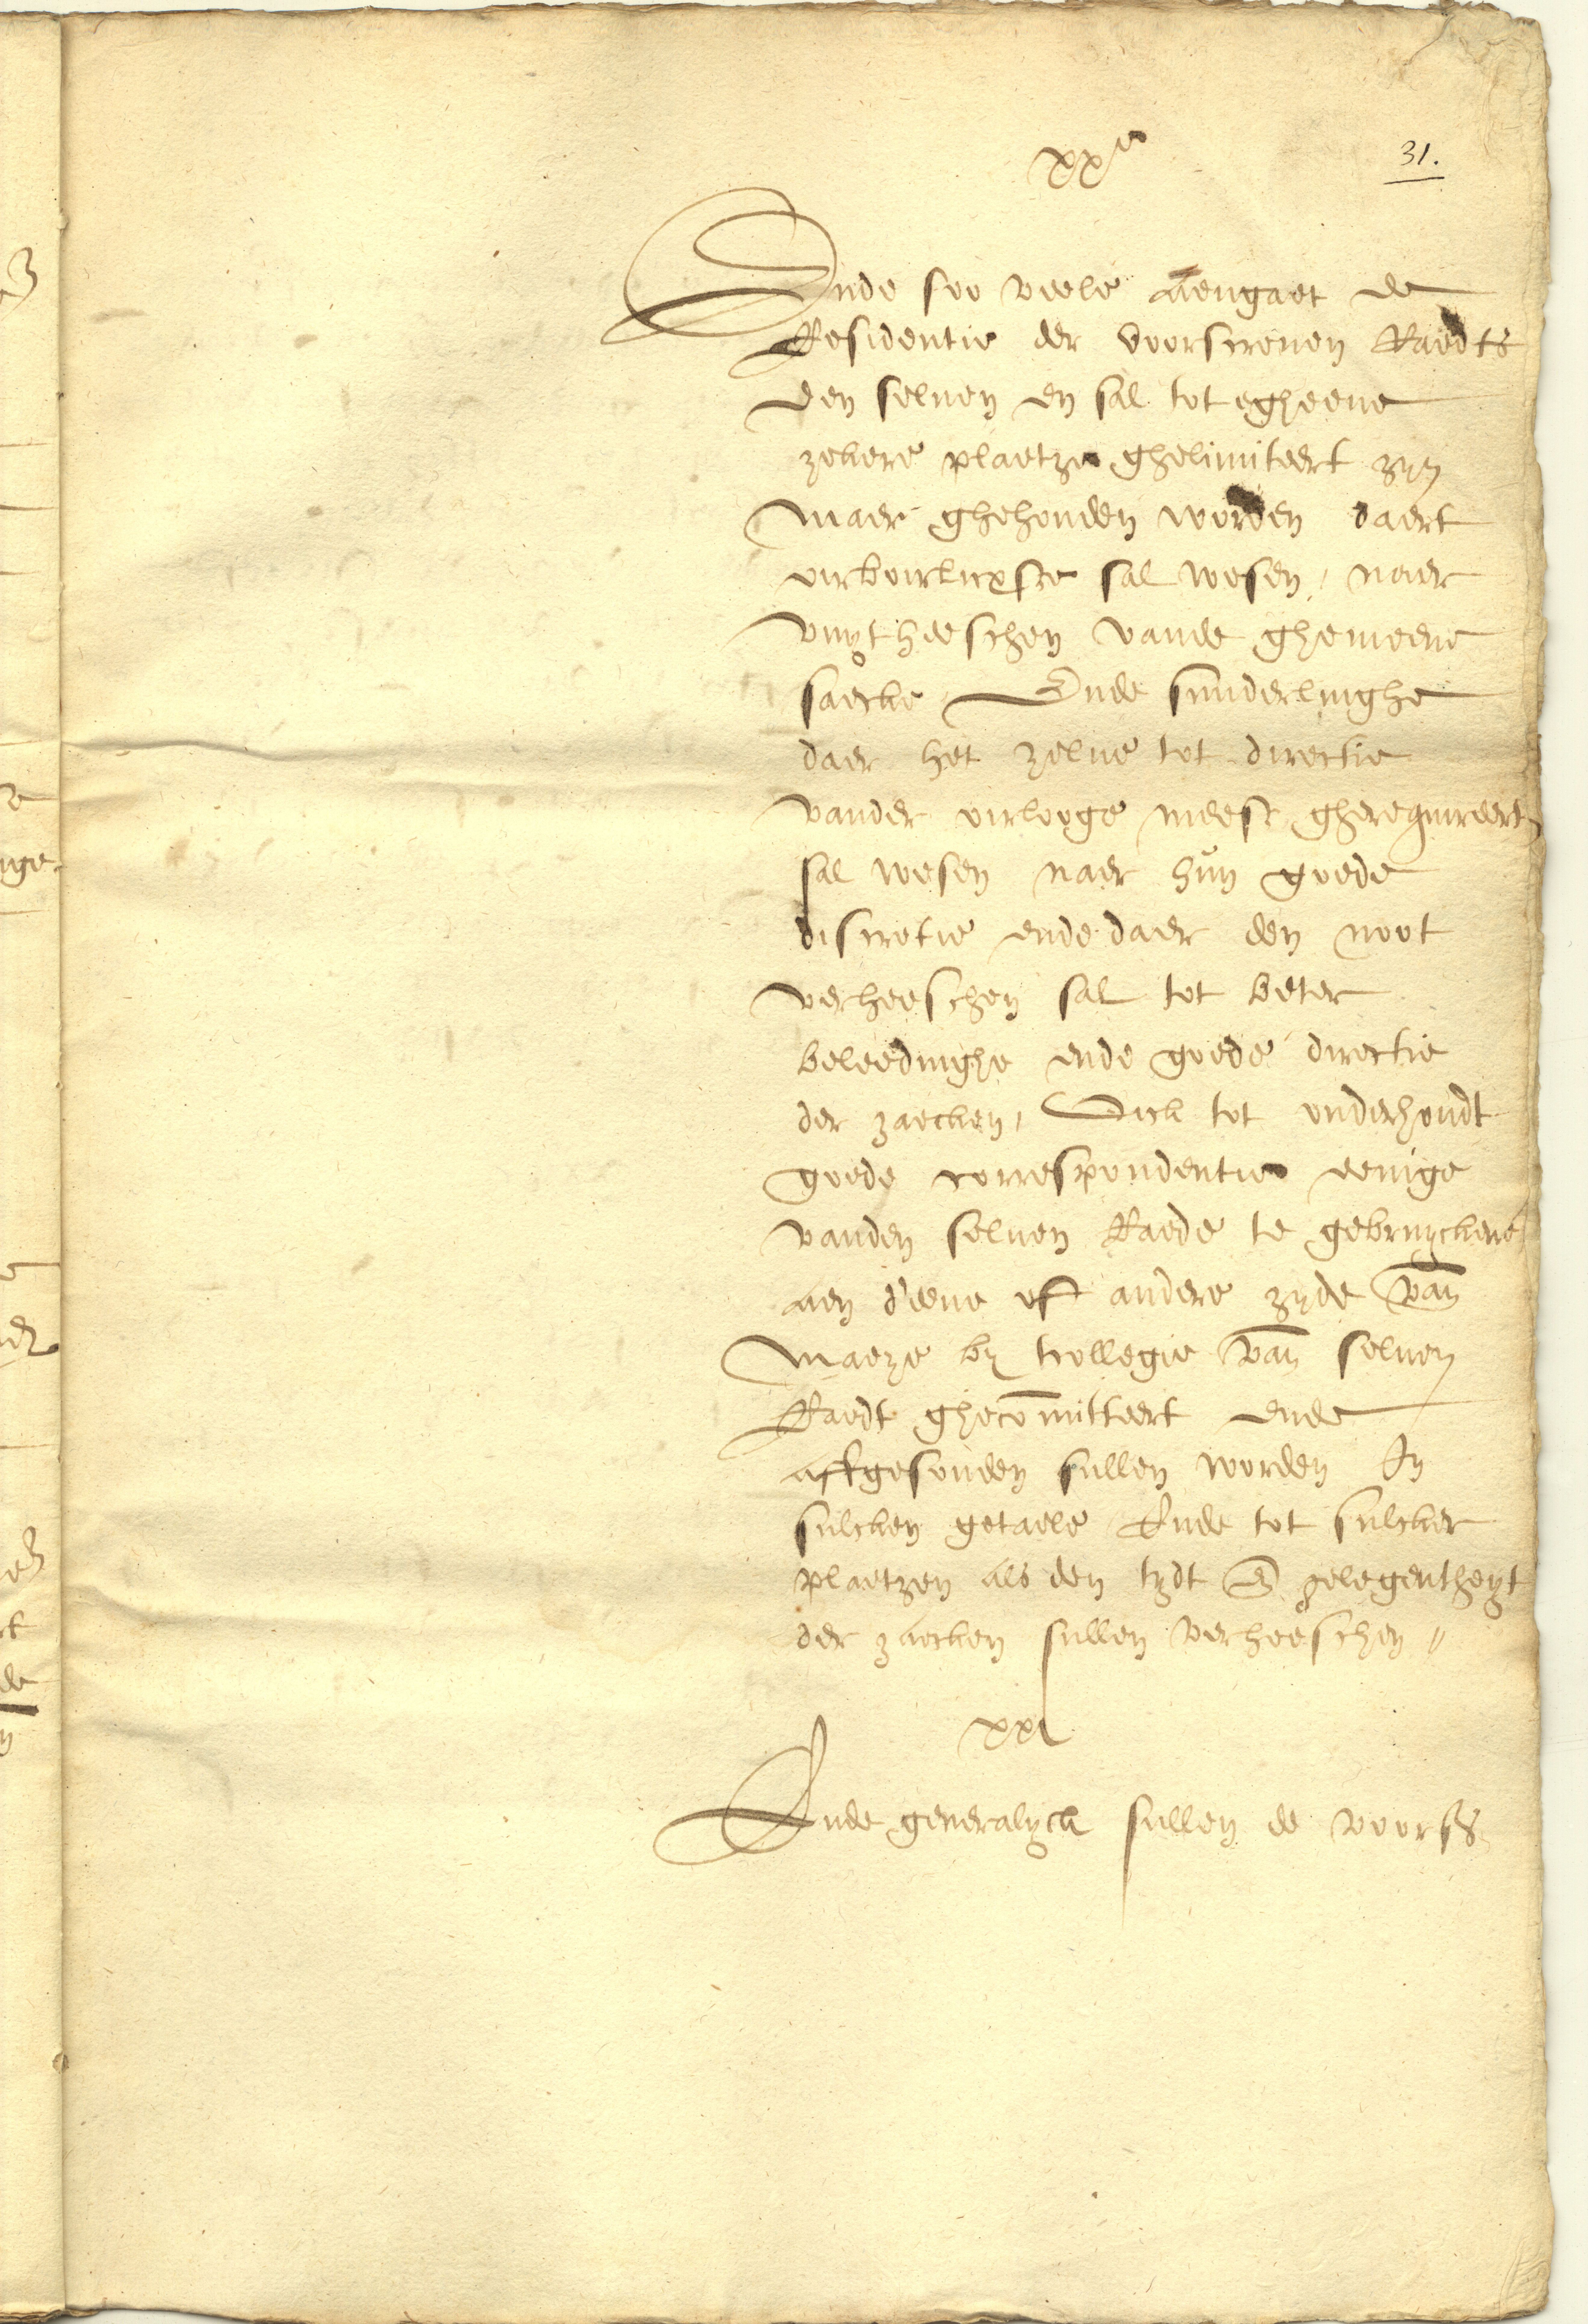 31.
xxe
Ende soo veele aengaet de
Residentie der voorscreven Raedts
Den selven en sal tot egheene
zekere plaetze ghelimiteert zyn
Maer ghehouden worden daert
oirboirlicxste sal wesen, naer
vuytheeschen vande ghemeene
saecke Ende sunderlinghe
daer het zelve tot directie
vander oirloge meest gherequireert
sal wesen naer hun goede
discretie ende daer den noot
verheeschen sal tot beter
beleedinghe ende goede directie
der zaecken, Oick tot onderhoudt
goede correspondentie eenige
vanden selven Raede te gebruyckene
aen d'eene oft andere zyde van
Maeze by tcollegie van selven
Raedt ghecomitteert ende
affgesonden sullen worden In
sulcken getaele Ende tot sulcker
plaetzen als den tydt en gelegentheyt
der zaecken sullen verheeschen //
xxi
Ende generalyck sullen de voors